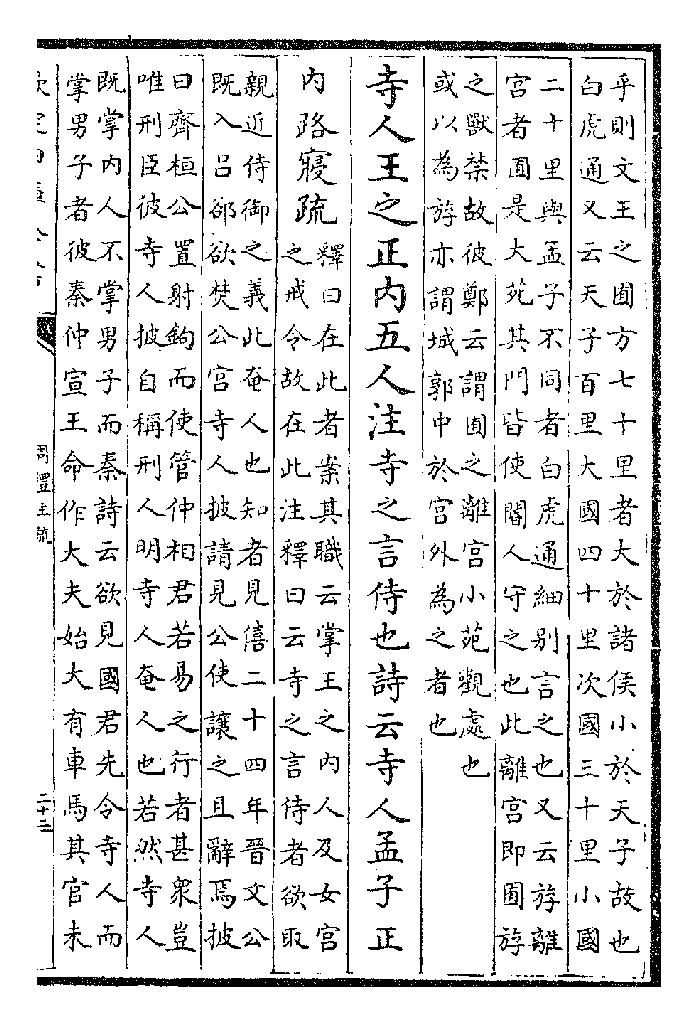 乎則文王之囿方七十里者大於諸侯小於天子故也
白虎通又云天子百里大國四十里次國三十里小國
二十里與孟子不同者白虎通細別言之也又云游離
宮者囿是大苑其門皆使閽人守之也此離宮即囿游
之獸禁故彼鄭云謂囿之離宮小苑觀處也
或以為游亦謂城郭中於宮外為之者也
寺人王之正內五人注寺之言侍也詩云寺人孟子正
內路寢疏
釋曰在此者案其職云掌王之內人及女宮
之戒令故在此注釋曰云寺之言侍者欲取
親近侍御之義此奄人也知者見僖二十四年晉文公
既入呂郤欲焚公宮寺人披請見公使讓之且辭焉披
曰齊桓公置射鉤而使管仲相君若易之行者甚衆豈
唯刑臣彼寺人披自稱刑人明寺人奄人也若然寺人
既掌內人不掌男子而秦詩云欲見國君先令寺人而
掌男子者彼秦仲宣王命作大夫始大有車馬其官未
周禮注疏
二十三